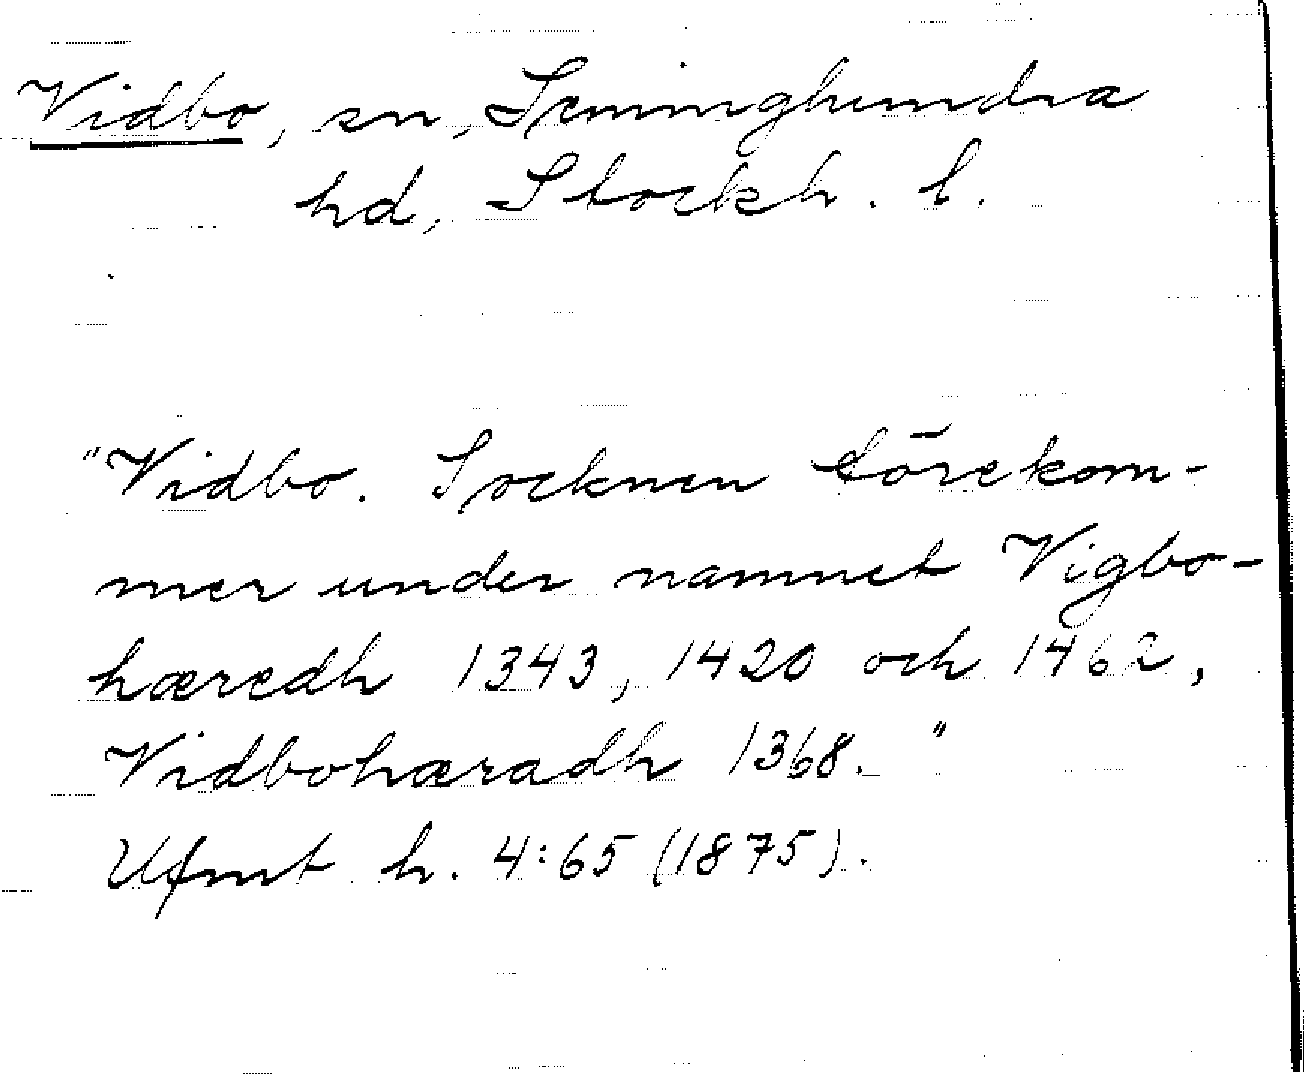 Vidbo, sn, Seminghundra
hd, Stockh. l.
"Vidbo. Socknen förekom-
mer under namnet Vigbo-
hæredh 1343, 1420 och 1462,
Vidbohæradh 1368."
Ufmt h. 4:65 (1875).